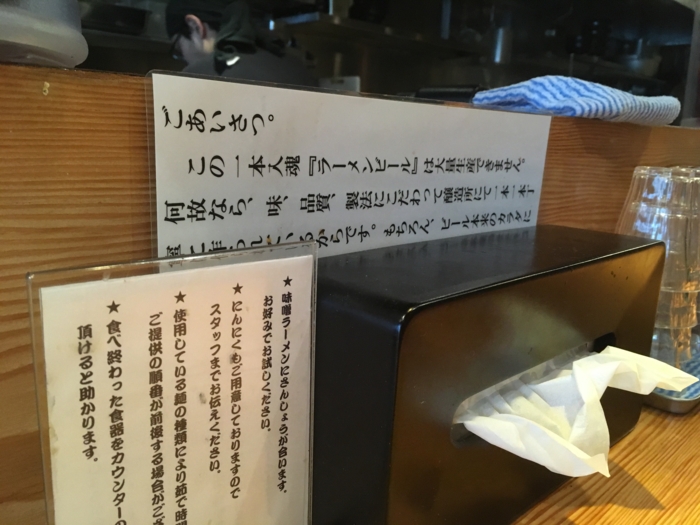 ごあいさつ。
この一本入魂『ラーメンビール』は大量生産できません。
何故なら、味、品質、製法にこだわって醸造所にて一本一本丁
からです。もちろん、ビール本来のカラダに
★味噌ラーメンにさんしょうが合います。
お好みでお試しください。
★にんにくもご用意しておりますので
スタッフまでお伝えください。
★使用している麺の種類により茹で時
ご提供の順番が前後する場合がござ
★食べ終わった食器をカウンターの
頂けると助かります。